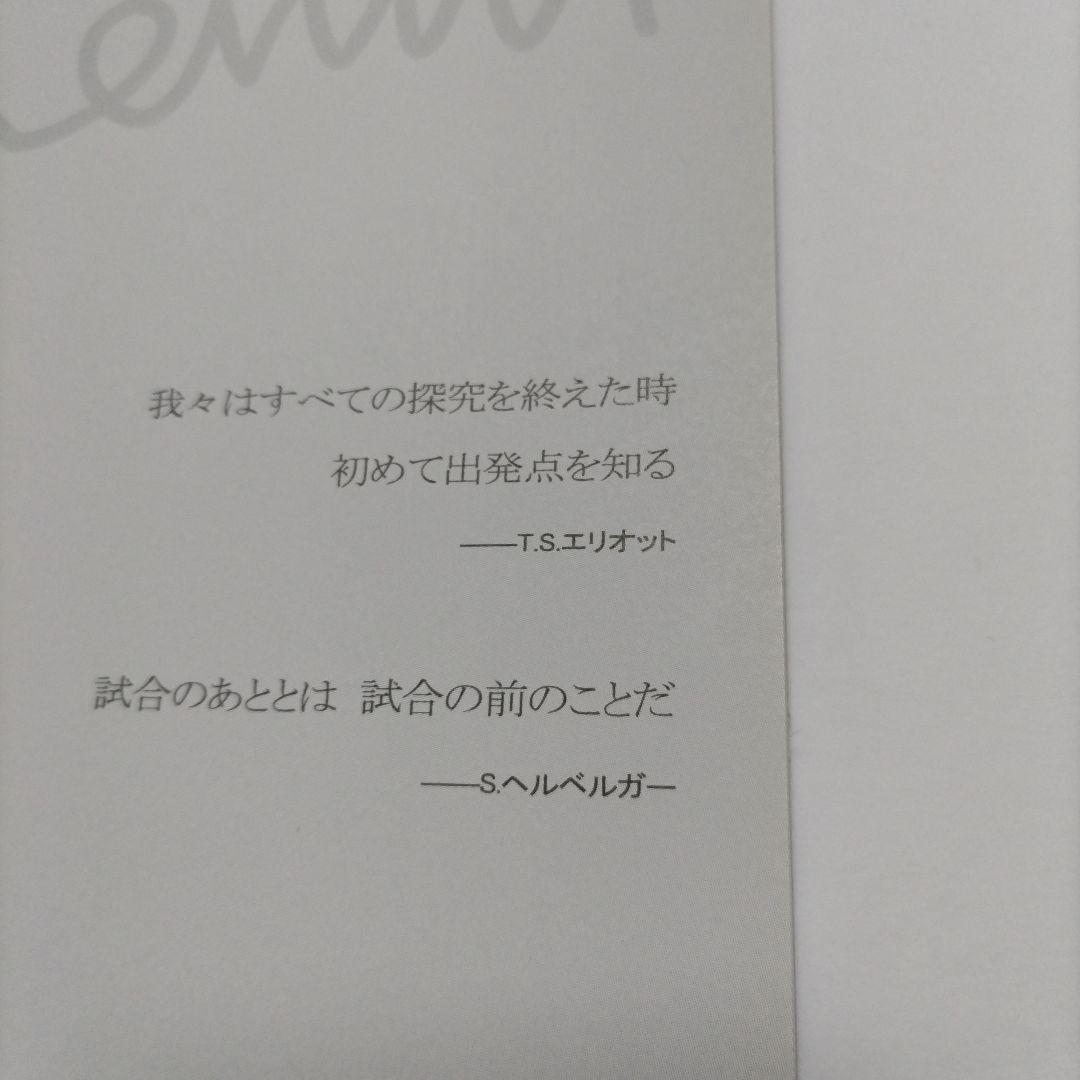 我々はすべての探究を終えた時
初めて出発点を知る
——T.S.エリオット
試合のあととは 試合の前のことだ
——S.ヘルベルガー